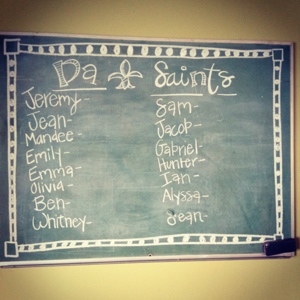 Da Saints
Jeremy-
Jean-
Mandee-
Emily-
Emma-
Olivia-
Ben-
Whitney-
Sam-
Jacob-
Gabriel-
Hunter-
Ian-
Alyssa-
Jean-